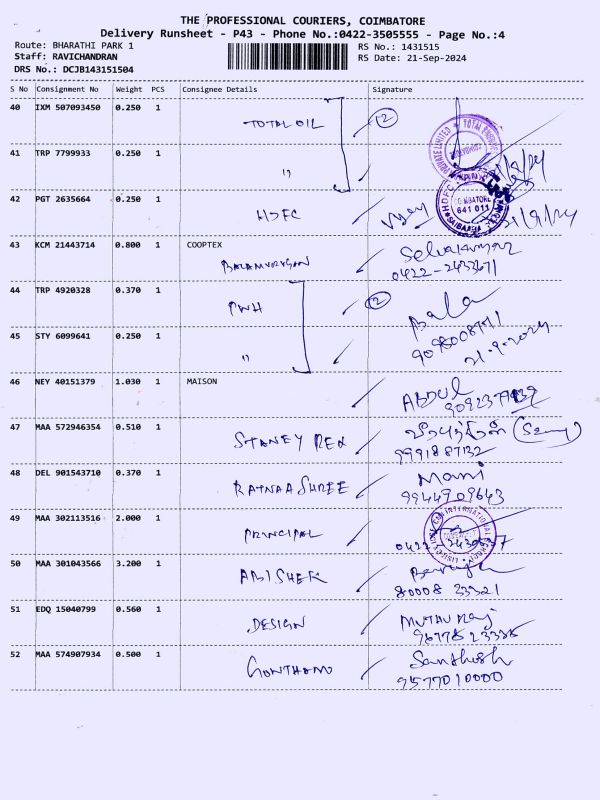 THE PROFESSIONAL COURIERS, COIMBATORE
Delivery Runsheet - P43 - Phone No.:0422-3505555 - Page No.:4
Route: BHARATHI PARK 1
RS No.: 1431515
Staff: RAVICHANDRAN
RS Date: 21-Sep-2024
DRS No.: DCJB143151504
S No Consignment No Weight PCS Consignee Details Signature
40 IXM 507093450 0.250 1 TOTAL OIL 2
41 TRP 7799933 0.250 1 "
42 PGT 2635664 0.250 1 HDFC 21/9/24
COIMBATORE
641 011
43 KCM 21443714 0.800 1 COOPTEX Selvakumar
BALAMURUGAN 0422-2433671
44 TRP 4920328 0.370 1 PWH 2 Bala
45 STY 6099641 0.250 1 " 21.9.2024
46 NEY 40151379 1.030 1 MAISON ABDUL
47 MAA 572946354 0.510 1 STANEY REX
9991887132
48 DEL 901543710 0.370 1 RATNAASHREE Mani
9944909643
49 MAA 302113516 2.000 1 PRINCIPAL
50 MAA 301043566 3.200 1 ABISHEK
80008 33321
51 EDQ 15040799 0.560 1 DESIGN MUTHU Raj
52 MAA 574907934 0.500 1 GONTHAM Santhosh
9577010000